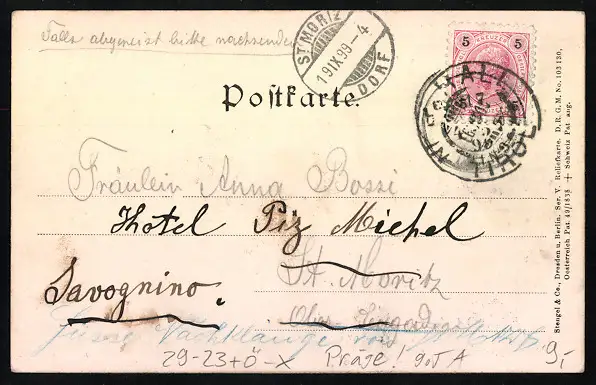 Falls abgereist bitte nachsenden
ST. MORIZ
19.IX.99-4
DORF
5 KREUZER 5
HALL
IN TIROL
Postkarte.
Fräulein Anna Bossi
Hotel Piz Michel
St. Moritz
Savognino.
Ober-Engadin
29-23+Ö-X Präge!
9,-
Stengel & Co., Dresden u. Berlin. Ser. V. Reliefkarte. D. R. G. M. No. 103130,
Oesterreich Pat. 49/1838 + Schweiz Pat. ang.